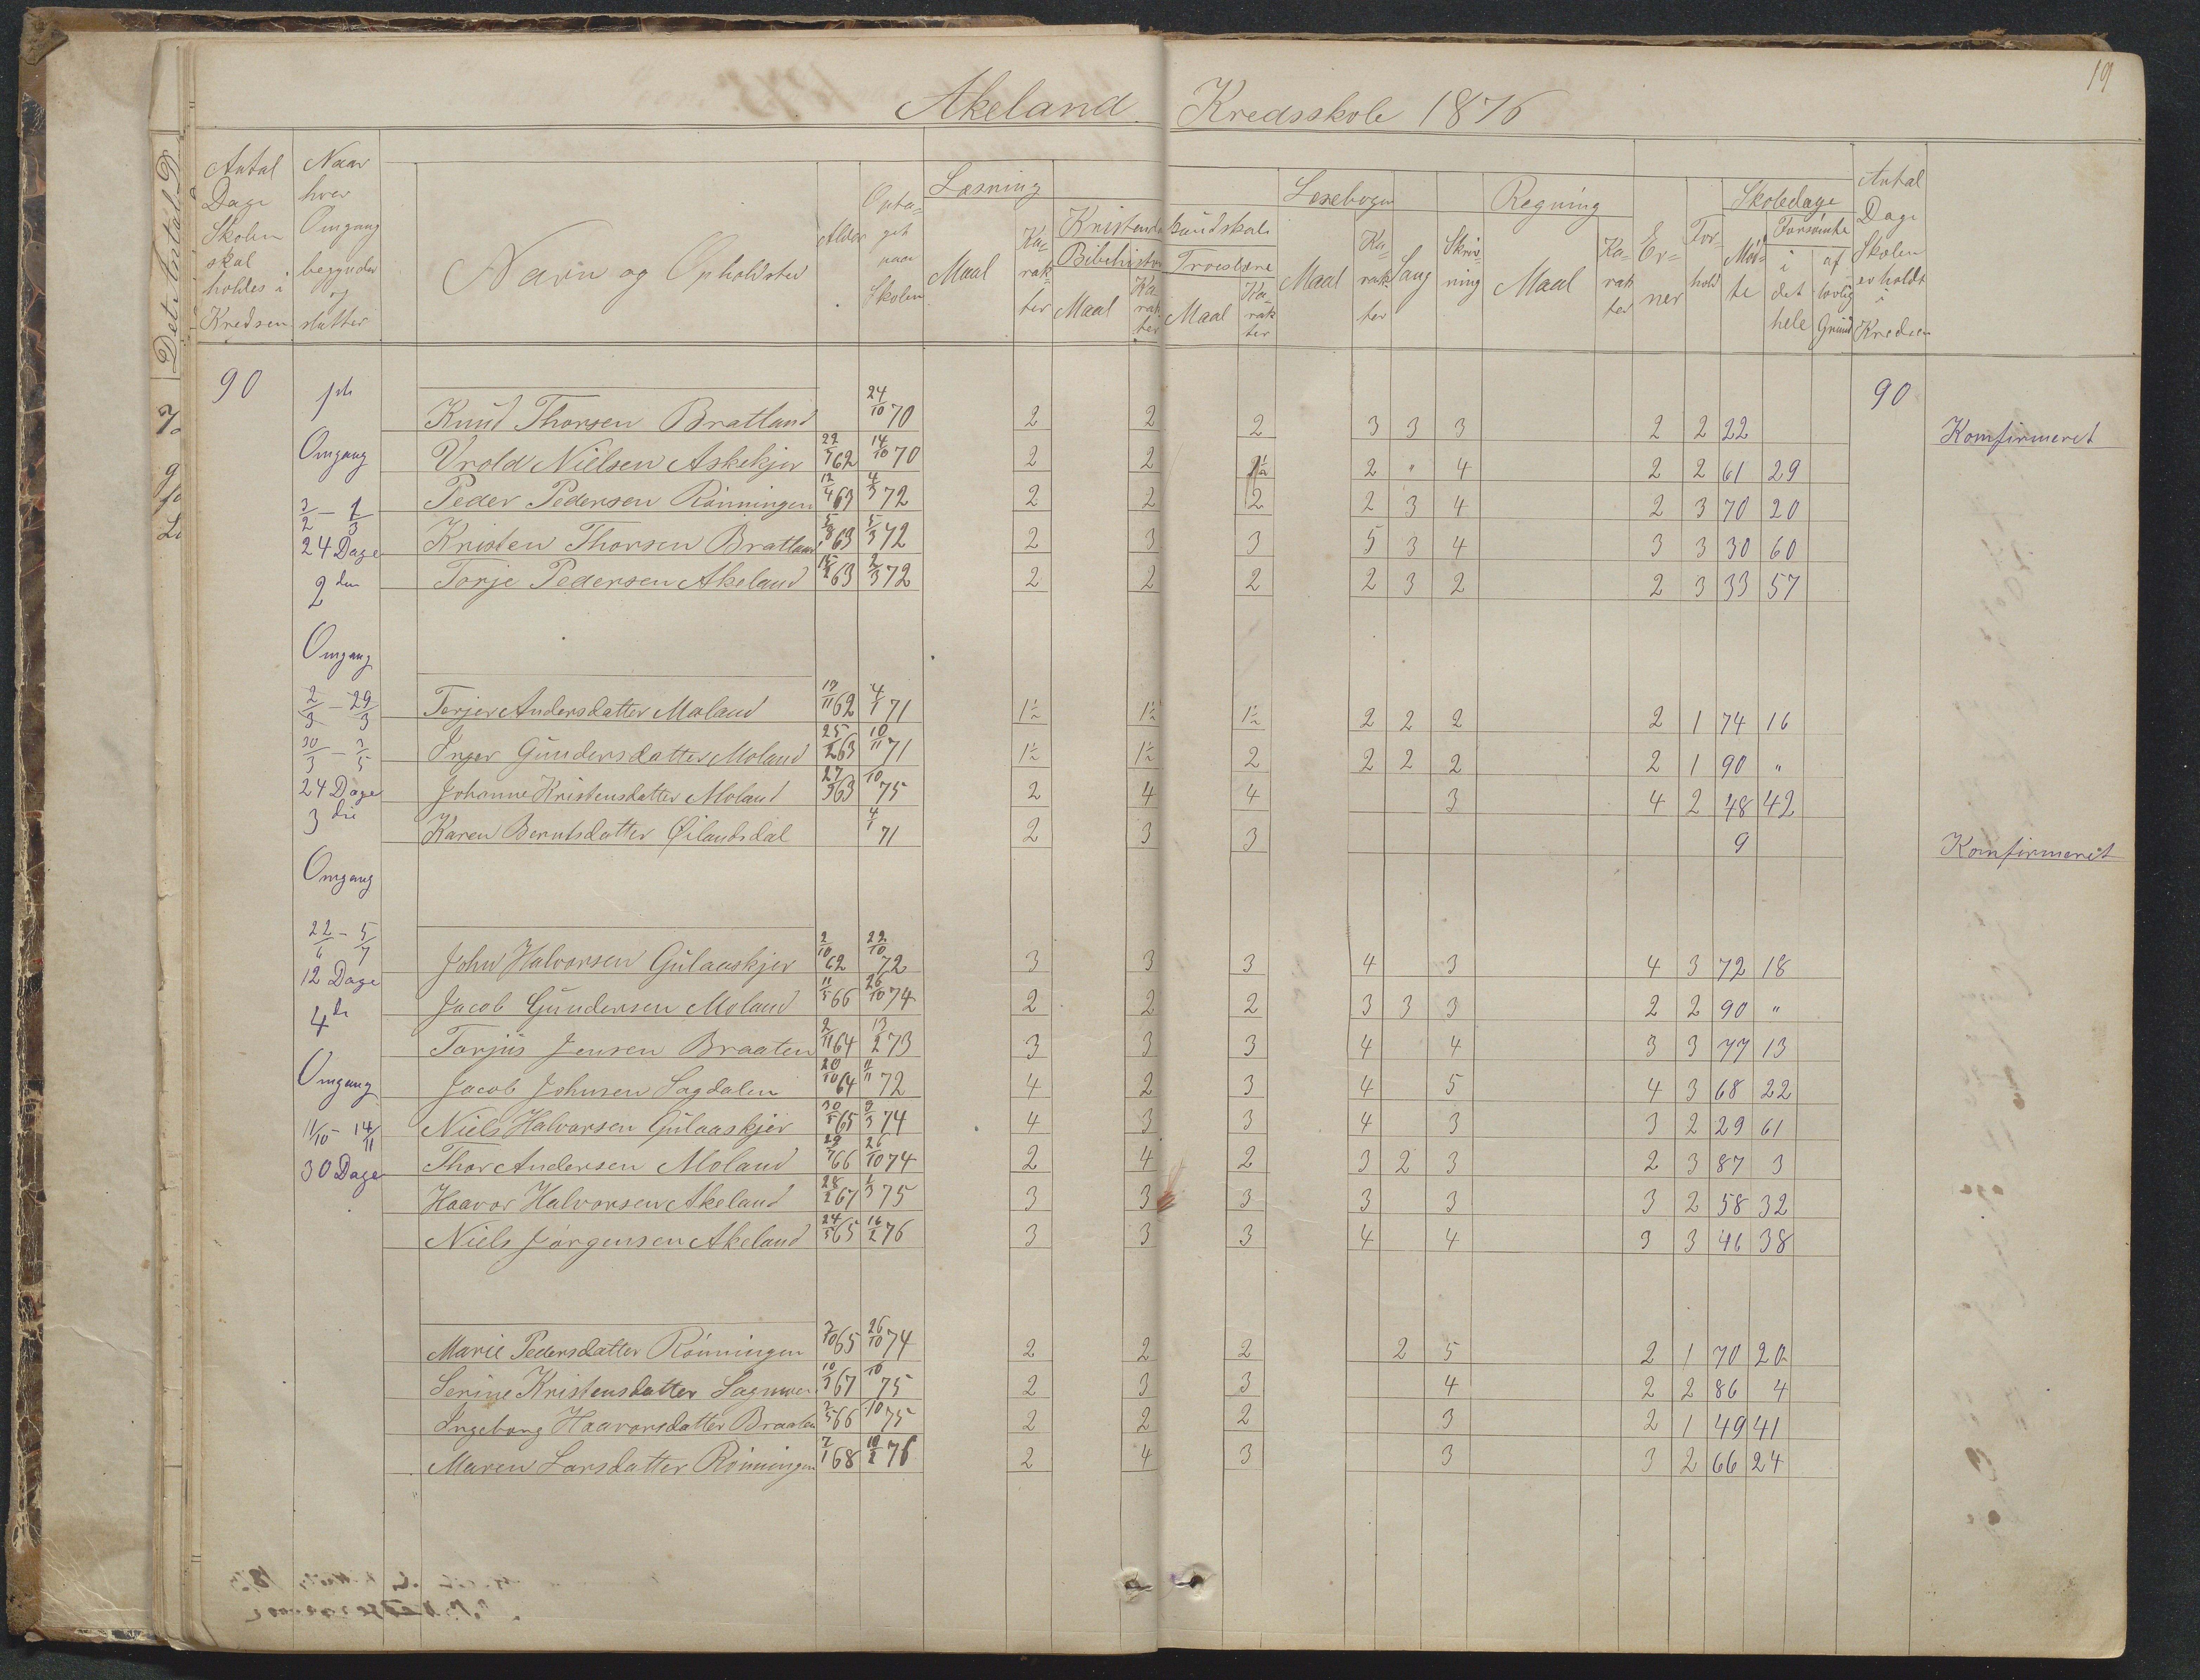 19
Akeland Kredsskole 1876
Antal Dage Skolen skal holdes i Kredsen
Naar hver Omgang begynder og slutter
Navn og Opholdsted
Alder
Optaget paa Skolen
Læsning
Maal
Karakter
Kristendomskundskab
Bibelhistorie
Maal
Karakter
Troeslære
Maal
Karakter
Læsebogen
Maal
Karakter
Sang
Skrivning
Regning
Maal
Karakter
Evner
Forhold
Skoledage
Mødte
Forsømte
i det hele
af lovlig Grund
Antal Dage Skolen er holdt i Kredsen
90
1ste
Omgang
3/2 - 1/3
24 Dage
2den
Omgang
2/3 - 29/3
30/3 - 3/5
24 Dage
3die
Omgang
22/6 - 5/7
12 Dage
4de
Omgang
11/10 - 14/11
30 Dage
Knud Thorsen Bratland 24/10 70 2 2 2 3 3 3 2 2 22 90 Komfirmeret
Vrold Nielsen Askekjer 22/5 62 14/10 70 2 2 1½ 2 " 4 2 2 61 29
Peder Pedersen Rönningen 12/4 63 4/3 72 2 2 2 2 3 4 2 3 70 20
Kristen Thorsen Bratland 5/8 63 5/3 72 2 3 3 5 3 4 3 3 30 60
Torje Pedersen Akeland 63 2/3 72 2 2 2 2 3 2 2 3 33 57
Terjer Andersdatter Moland 17/11 62 4/1 71 1½ 1½ 1½ 2 2 2 2 1 74 16
Inger Gundersdatter Moland 25/2 63 10/11 71 1½ 1½ 2 2 2 2 2 1 90 "
Johanne Kristensdatter Moland 27/3 63 /10 75 2 4 4 3 4 2 48 42
Karen Berntsdatter Øilandsdal 4/1 71 2 3 3 9 Komfirmeret
John Halvorsen Gulaaskjer 2/10 62 22/10 72 3 3 3 4 3 4 3 72 18
Jacob Gundersen Moland 11/5 66 26/10 74 2 2 2 3 3 3 2 2 90 "
Torjus Jensen Braaten 2/11 64 13/2 73 3 3 3 4 4 3 3 77 13
Jacob Johnsen Sagdalen 20/10 64 11/11 72 4 2 3 4 5 4 3 68 22
Niels Halvorsen Gulaaskjer 30/5 65 9/3 74 4 3 3 4 3 3 2 29 61
Thor Andersen Moland 29/7 66 26/10 74 2 4 2 3 2 3 2 3 87 3
Haavor Halvorsen Akeland 28/2 67 1/3 75 3 3 3 3 3 3 2 58 32
Niels Jörgensen Akeland 24/5 65 16/2 76 3 3 3 4 4 3 3 46 38
Marie Pedersdatter Rönningen 3/10 65 26/10 74 2 2 2 2 5 2 1 70 20
Serine Kristensdatter 10/3 67 /10 75 2 3 3 4 2 2 86 4
Ingeborg Haavorsdatter Braaten 2/5 66 /10 75 2 2 2 3 2 1 49 41
Maren Larsdatter Rönningen 7/1 68 10/2 76 2 4 3 3 3 2 66 24
Det Antal D